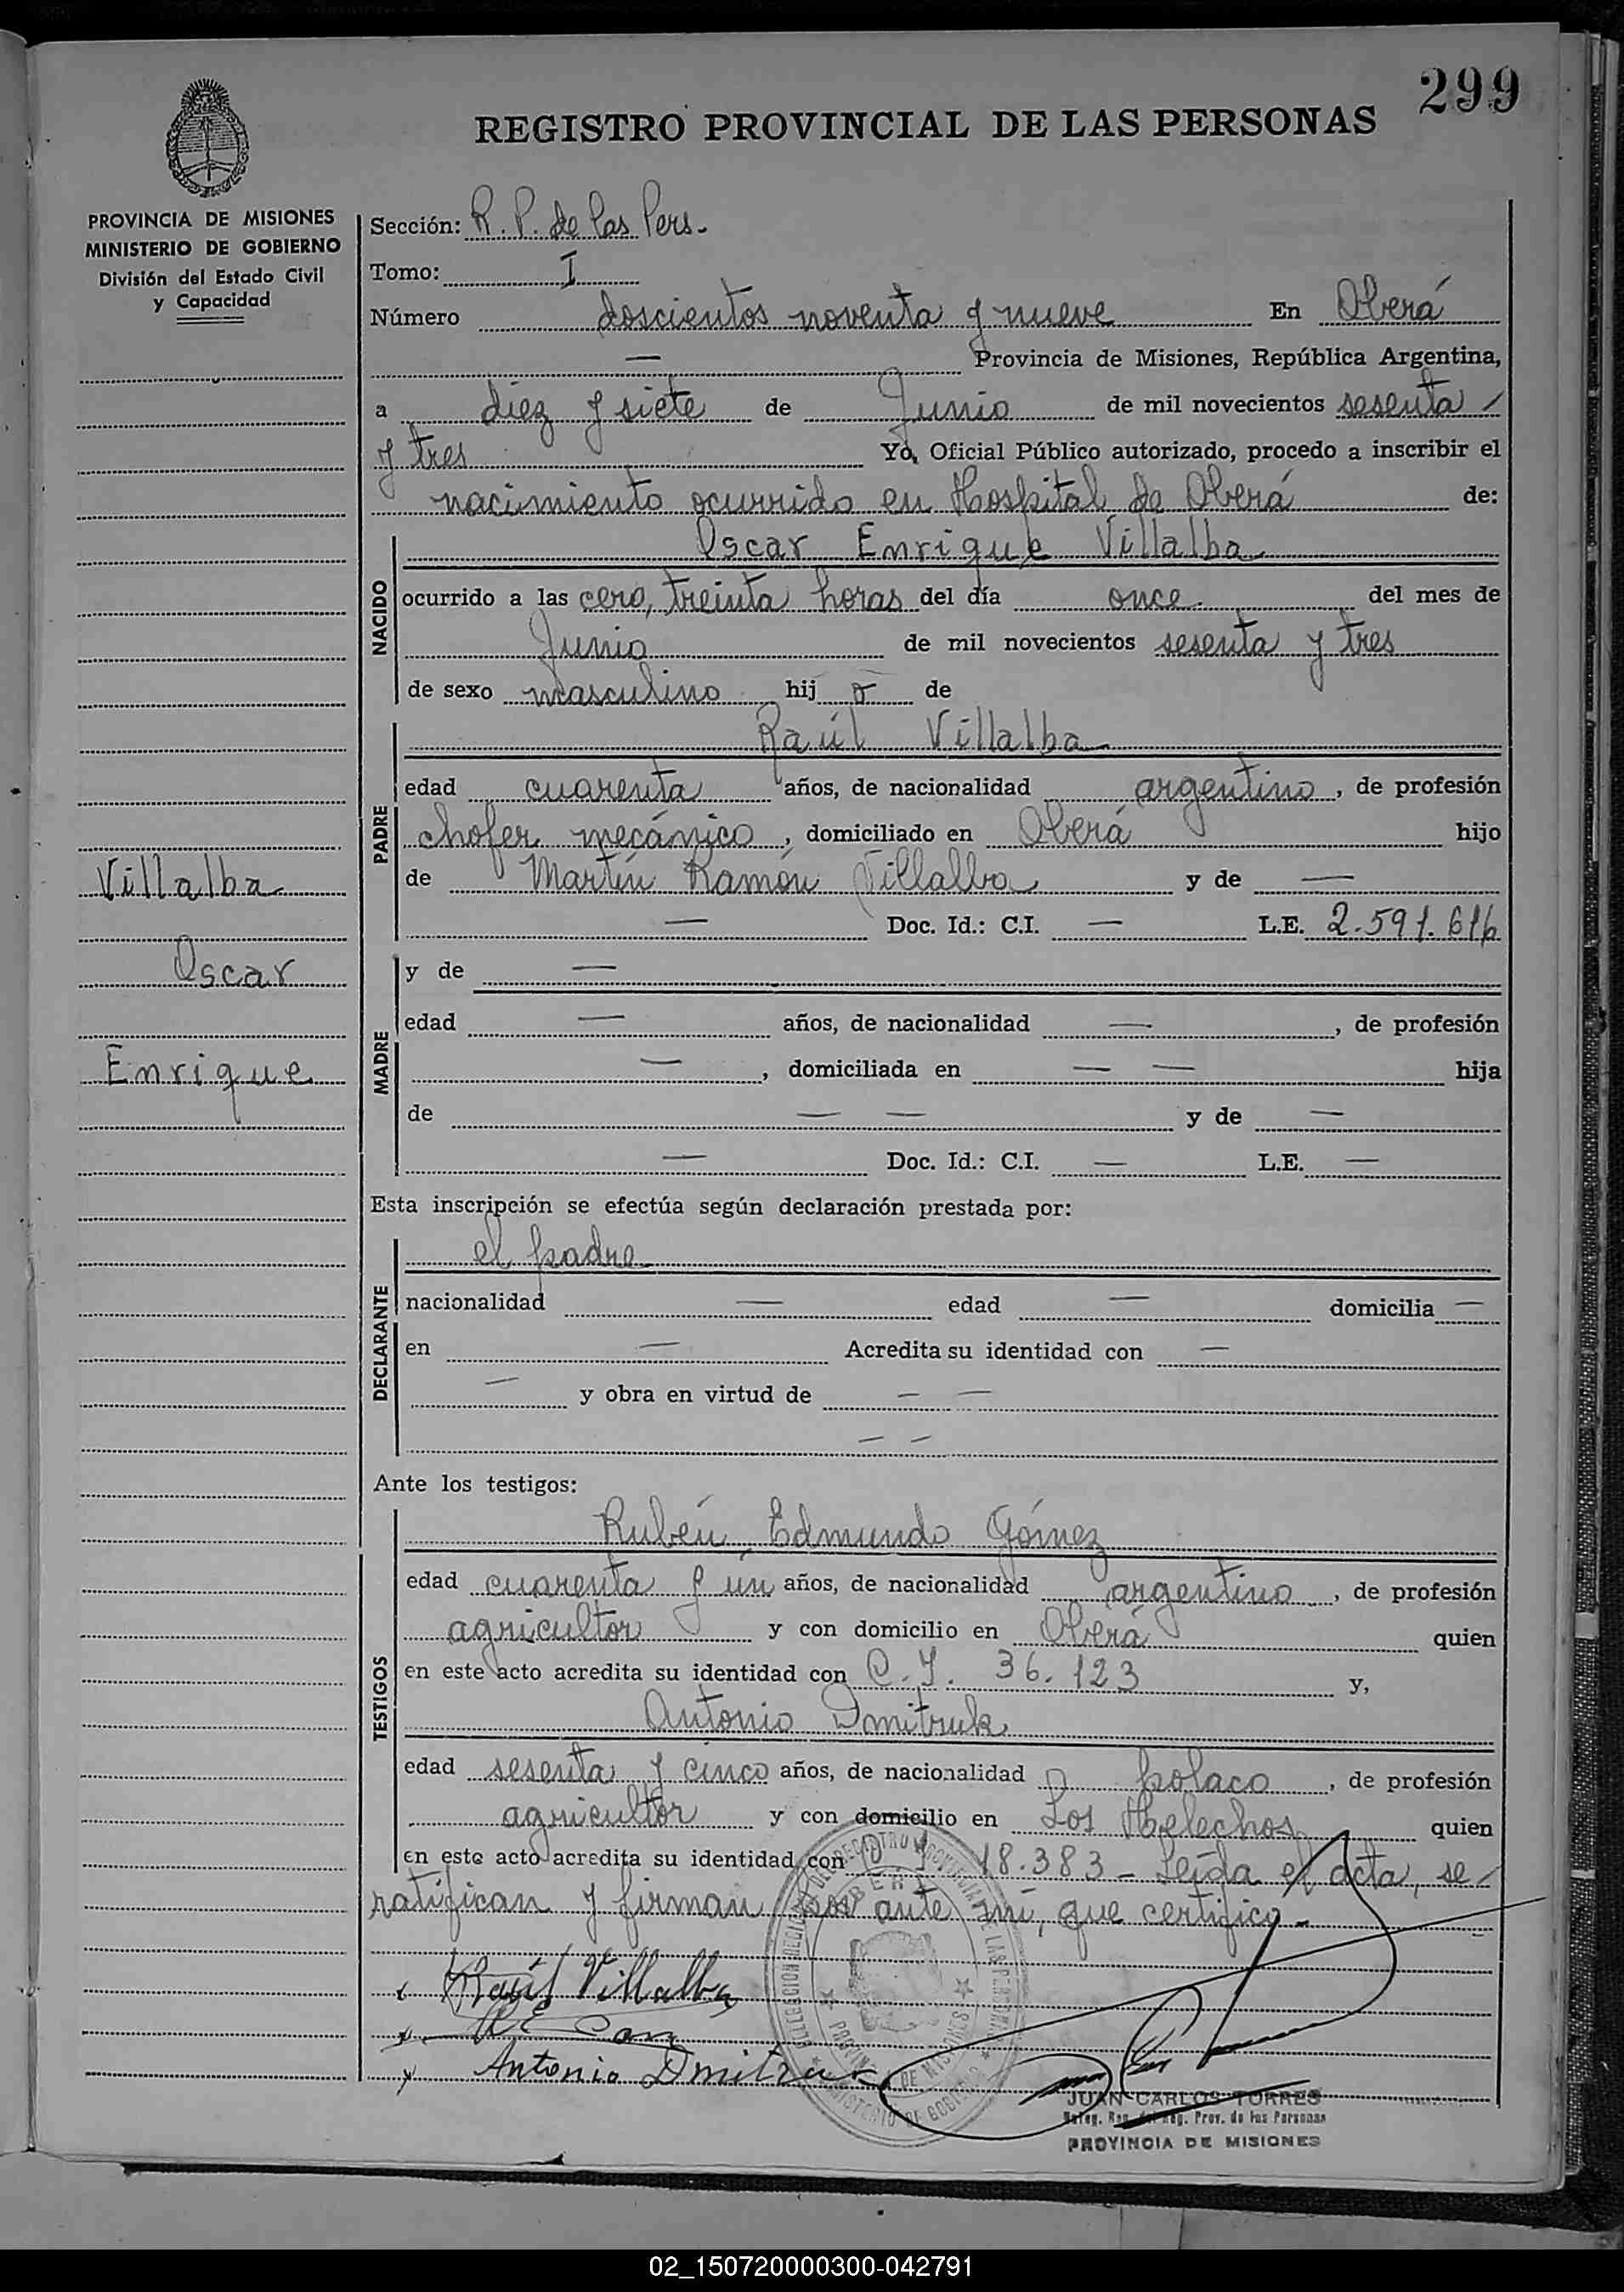 299
REGISTRO PROVINCIAL DE LAS PERSONAS
PROVINCIA DE MISIONES
MINISTERIO DE GOBIERNO
División del Estado Civil
y Capacidad
Villalba
Oscar
Enrique
Sección: R. P. de las Pers.
Tomo: I
Número doscientos noventa y nueve En Oberá
— Provincia de Misiones, República Argentina,
a diez y siete de Junio de mil novecientos sesenta
y tres Yo, Oficial Público autorizado, procedo a inscribir el
nacimiento ocurrido en Hospital de Oberá de:
NACIDO
Oscar Enrique Villalba
ocurrido a las cero, treinta horas del día once. del mes de
Junio de mil novecientos sesenta y tres
de sexo masculino hij o de
PADRE
Raúl Villalba
edad cuarenta años, de nacionalidad argentino, de profesión
chofer mecánico, domiciliado en Oberá hijo
de Martín Ramón Villalba y de —
— Doc. Id.: C.I. — L.E. 2.591.616
MADRE
y de —
edad — años, de nacionalidad —, de profesión
—, domiciliada en — — hija
de — — y de —
— Doc. Id.: C.I. — L.E. —
Esta inscripción se efectúa según declaración prestada por:
DECLARANTE
el padre
nacionalidad — edad — domicilia —
en — Acredita su identidad con —
— y obra en virtud de — —
— —
Ante los testigos:
TESTIGOS
Rubén Edmundo Gómez
edad cuarenta y un años, de nacionalidad argentino, de profesión
agricultor y con domicilio en Oberá quien
en este acto acredita su identidad con C.I. 36.123 y,
Antonio Dmitruk
edad sesenta y cinco años, de nacionalidad polaco, de profesión
agricultor y con domicilio en Los Helechos quien
en este acto acredita su identidad con 18.383 - Leída el acta, se
ratifican y firman por ante mí, que certifico -
Raúl Villalba
Antonio Dmitruk
JUAN CARLOS TORRES
Reg. Prov. de las Personas
PROVINCIA DE MISIONES
02_150720000300-042791